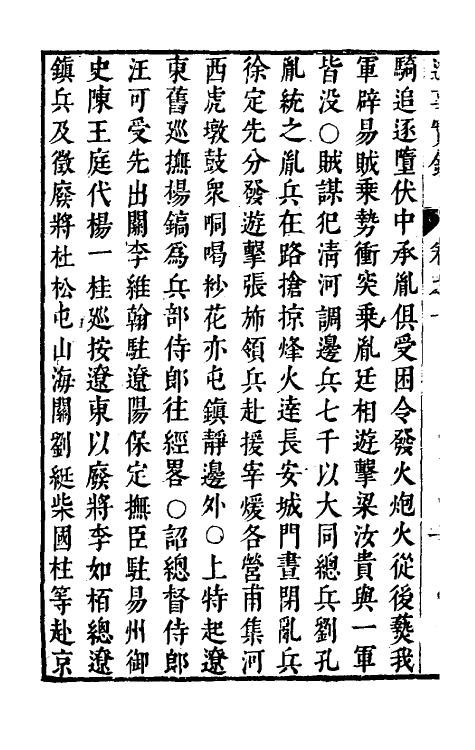 騎追逐墮伏中承胤俱受困令發火炮火從後爇我
軍辟易賊乘勢衝突乗胤廷相遊擊梁汝貴與一軍
皆没○賊謀犯淸河調邊兵七千以大同總兵劉孔
胤統之胤兵在路搶掠烽火達長安城門晝閉亂兵
徐定先分發遊擊張斾領兵赴援宰煖各營甫集河
西虎墩鼓衆哃喝抄花亦屯鎮靜邊外○上特起遼
東舊巡撫楊鎬爲兵部侍郎往經畧○詔總督侍郎
汪可受先出關李維翰駐遼陽保定撫臣駐易州御
史陳王庭代楊一桂巡按遼東以廢將李如栢總遼
鎮兵及徵廢將杜松屯山海關劉綎柴國柱等赴京